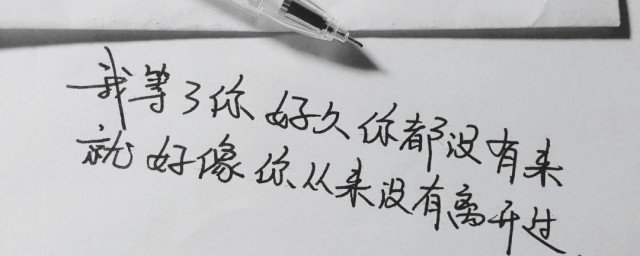 我等了你好久你都没有来
就好像你从来没有离开过